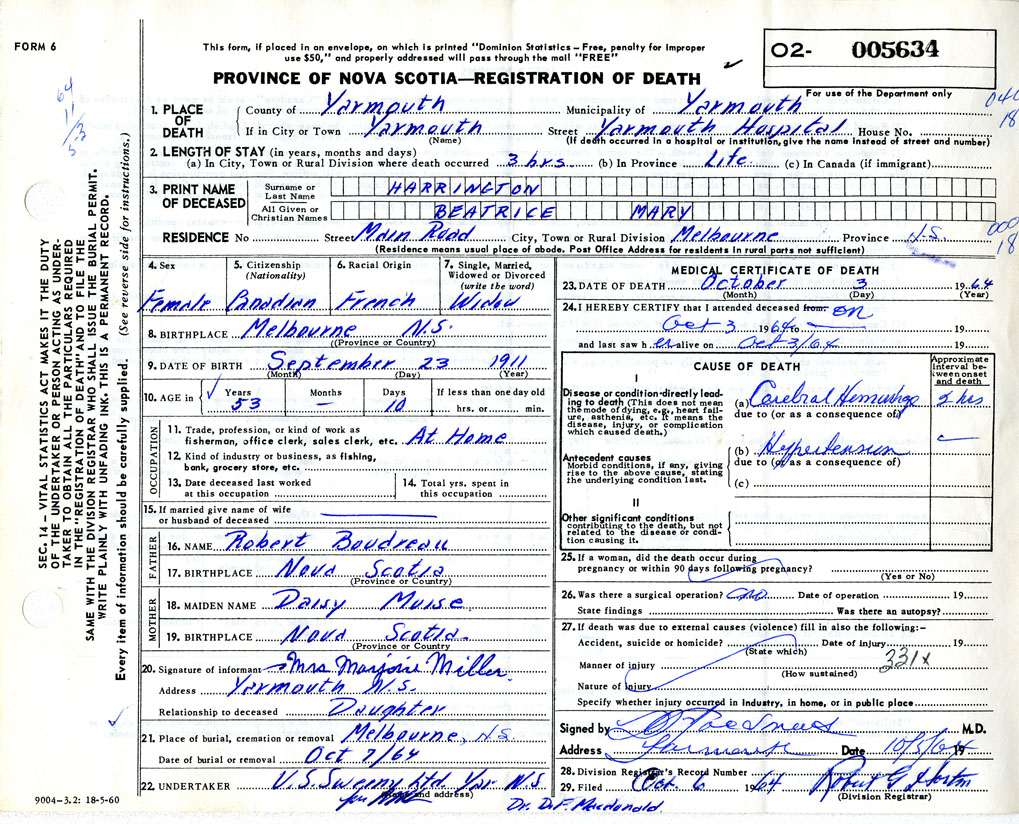 FORM 6
This form, if placed in an envelope, on which is printed "Dominion Statistics – Free, penalty for improper
use $50," and properly addressed will pass through the mail "FREE"
PROVINCE OF NOVA SCOTIA—REGISTRATION OF DEATH
O2- 005634
For use of the Department only
1. PLACE OF DEATH
County of Yarmouth Municipality of Yarmouth
If in City or Town Yarmouth Street Yarmouth Hospital House No.
(Name) (If death occurred in a hospital or institution, give the name instead of street and number)
2. LENGTH OF STAY (in years, months and days)
(a) In City, Town or Rural Division where death occurred 3 hrs (b) In Province Life (c) In Canada (if immigrant)
3. PRINT NAME OF DECEASED
Surname or Last Name HARRINGTON
All Given or Christian Names BEATRICE MARY
RESIDENCE No Street Main Road City, Town or Rural Division Melbourne Province N.S.
(Residence means usual place of abode. Post Office Address for residents in rural parts not sufficient)
4. Sex Female
5. Citizenship (Nationality) Canadian
6. Racial Origin French
7. Single, Married, Widowed or Divorced (write the word) Widow
8. BIRTHPLACE Melbourne N.S.
(Province or Country)
9. DATE OF BIRTH September 23 1911
(Month) (Day) (Year)
10. AGE in Years 53 Months — Days 10 If less than one day old hrs. or min.
OCCUPATION
11. Trade, profession, or kind of work as
fisherman, office clerk, sales clerk, etc. At Home
12. Kind of industry or business, as fishing,
bank, grocery store, etc.
13. Date deceased last worked
at this occupation
14. Total yrs. spent in
this occupation
15. If married give name of wife
or husband of deceased
FATHER
16. NAME Robert Boudreau
17. BIRTHPLACE Nova Scotia
(Province or Country)
MOTHER
18. MAIDEN NAME Daisy Muise
19. BIRTHPLACE Nova Scotia
(Province or Country)
20. Signature of informant Mrs Marjorie Miller
Address Yarmouth N.S.
Relationship to deceased Daughter
21. Place of burial, cremation or removal Melbourne, N.S.
Date of burial or removal Oct 7/64
22. UNDERTAKER V.S. Sweeny Ltd. Yar N.S.
(Name and address)
MEDICAL CERTIFICATE OF DEATH
23. DATE OF DEATH October 3 1964
(Month) (Day) (Year)
24. I HEREBY CERTIFY that I attended deceased from: on
Oct 3 1964 to 19
and last saw her alive on Oct 3/64 19
CAUSE OF DEATH
Approximate interval between onset and death
I
Disease or condition directly leading to death (This does not mean the mode of dying, e.g., heart failure, asthenia, etc. It means the disease, injury, or complication which caused death.)
(a) Cerebral Hemorrhage hrs
due to (or as a consequence of)
Antecedent causes
Morbid conditions, if any, giving rise to the above cause, stating the underlying condition last.
(b) Hypertension
due to (or as a consequence of)
(c)
II
Other significant conditions
contributing to the death, but not related to the disease or condition causing it.
25. If a woman, did the death occur during
pregnancy or within 90 days following pregnancy?
(Yes or No)
26. Was there a surgical operation? no Date of operation 19
State findings Was there an autopsy?
27. If death was due to external causes (violence) fill in also the following:–
Accident, suicide or homicide? Date of injury 19
(State which)
Manner of injury 331x
(How sustained)
Nature of injury
Specify whether injury occurred in industry, in home, or in public place
Signed by M.D.
Address Yarmouth Date 10/5/64 19
28. Division Registrar's Record Number
29. Filed Oct. 6 1964 Robert G
(Division Registrar)
Dr. D.F. Macdonald
SEC. 14 – VITAL STATISTICS ACT MAKES IT THE DUTY
OF THE UNDERTAKER OR PERSON ACTING AS UNDERTAKER
TO OBTAIN ALL THE PARTICULARS REQUIRED
IN THE "REGISTRATION OF DEATH" AND TO FILE THE
SAME WITH THE DIVISION REGISTRAR WHO SHALL ISSUE THE BURIAL PERMIT.
WRITE PLAINLY WITH UNFADING INK. THIS IS A PERMANENT RECORD.
Every item of information should be carefully supplied. (See reverse side for instructions.)
9004–3.2: 18-5-60